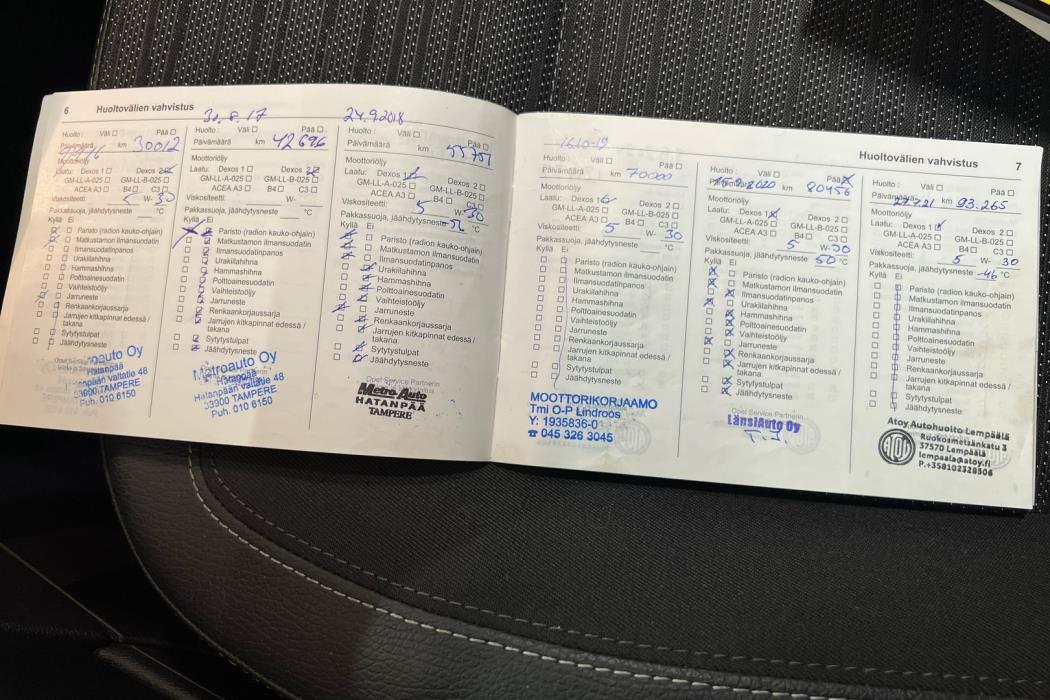 6 Huoltovälien vahvistus
Huolto: Väli Pää
Päivämäärä km 30012
Moottoriöljy
Laatu: Dexos 1 Dexos 2
GM-LL-A-025 GM-LL-B-025
ACEA A3 B4 C3
Viskositeetti 5 W-30
Pakkassuoja, jäähdytysneste °C
Kyllä Ei
Paristo (radion kauko-ohjain)
Matkustamon ilmansuodatin
Ilmansuodatinpanos
Urakiilahihna
Hammashihna
Polttoainesuodatin
Vaihteistoöljy
Jarruneste
Renkaankorjaussarja
Jarrujen kitkapinnat edessä /
takana
Sytytystulpat
Jäähdytysneste
Hatanpää
Hatanpään valtatie 48
33900 TAMPERE
Puh. 010 6150
30.8.17
Huolto: Väli Pää
Päivämäärä km 42696
Moottoriöljy
Laatu: Dexos 1 Dexos 2
GM-LL-A-025 GM-LL-B-025
ACEA A3 B4 C3
Viskositeetti W-
Pakkassuoja, jäähdytysneste °C
Kyllä Ei
Paristo (radion kauko-ohjain)
Matkustamon ilmansuodatin
Ilmansuodatinpanos
Urakiilahihna
Hammashihna
Polttoainesuodatin
Vaihteistoöljy
Jarruneste
Renkaankorjaussarja
Jarrujen kitkapinnat edessä /
takana
Sytytystulpat
Jäähdytysneste
Metroauto Oy
Hatanpää
Hatanpään valtatie 48
33900 TAMPERE
Puh. 010 6150
24.9.2018
Huolto: Väli Pää
Päivämäärä km 55751
Moottoriöljy
Laatu: Dexos 1 Dexos 2
GM-LL-A-025 GM-LL-B-025
ACEA A3 B4 C3
Viskositeetti 5 W-30
Pakkassuoja, jäähdytysneste °C
Kyllä Ei
Paristo (radion kauko-ohjain)
Matkustamon ilmansuodatin
Ilmansuodatinpanos
Urakiilahihna
Hammashihna
Polttoainesuodatin
Vaihteistoöljy
Jarruneste
Renkaankorjaussarja
Jarrujen kitkapinnat edessä /
takana
Sytytystulpat
Jäähdytysneste
Opel Service Partnerin
Metro Auto
HATANPÄÄ
TAMPERE
Huoltovälien vahvistus 7
16.10-19
Huolto: Väli Pää
Päivämäärä km 70000
Moottoriöljy
Laatu: Dexos 1 Dexos 2
GM-LL-A-025 GM-LL-B-025
ACEA A3 B4 C3
Viskositeetti 5 W-30
Pakkassuoja, jäähdytysneste °C
Kyllä Ei
Paristo (radion kauko-ohjain)
Matkustamon ilmansuodatin
Ilmansuodatinpanos
Urakiilahihna
Hammashihna
Polttoainesuodatin
Vaihteistoöljy
Jarruneste
Renkaankorjaussarja
Jarrujen kitkapinnat edessä /
takana
Sytytystulpat
Jäähdytysneste
MOOTTORIKORJAAMO
Tmi O-P Lindroos
Y: 1935836-0
☎ 045 326 3045
Huolto: Väli Pää
Päivämäärä km 80456
Moottoriöljy
Laatu: Dexos 1 Dexos 2
GM-LL-A-025 GM-LL-B-025
ACEA A3 B4 C3
Viskositeetti 5 W-30
Pakkassuoja, jäähdytysneste 50 °C
Kyllä Ei
Paristo (radion kauko-ohjain)
Matkustamon ilmansuodatin
Ilmansuodatinpanos
Urakiilahihna
Hammashihna
Polttoainesuodatin
Vaihteistoöljy
Jarruneste
Renkaankorjaussarja
Jarrujen kitkapinnat edessä /
takana
Sytytystulpat
Jäähdytysneste
Opel Service Partner
LänsiAuto Oy
Huolto: Väli Pää
Päivämäärä km 93.265
Moottoriöljy
Laatu: Dexos 1 Dexos 2
GM-LL-A-025 GM-LL-B-025
ACEA A3 B4 C3
Viskositeetti 5 W- 30
Pakkassuoja, jäähdytysneste -46 °C
Kyllä Ei
Paristo (radion kauko-ohjain)
Matkustamon ilmansuodatin
Ilmansuodatinpanos
Urakiilahihna
Hammashihna
Polttoainesuodatin
Vaihteistoöljy
Jarruneste
Renkaankorjaussarja
Jarrujen kitkapinnat edessä /
takana
Sytytystulpat
Jäähdytysneste
Atoy Autohuolto Lempäälä
Ruokosmetsänkatu 3
37570 Lempäälä
lempaala@atoy.fi
P.+358102328506